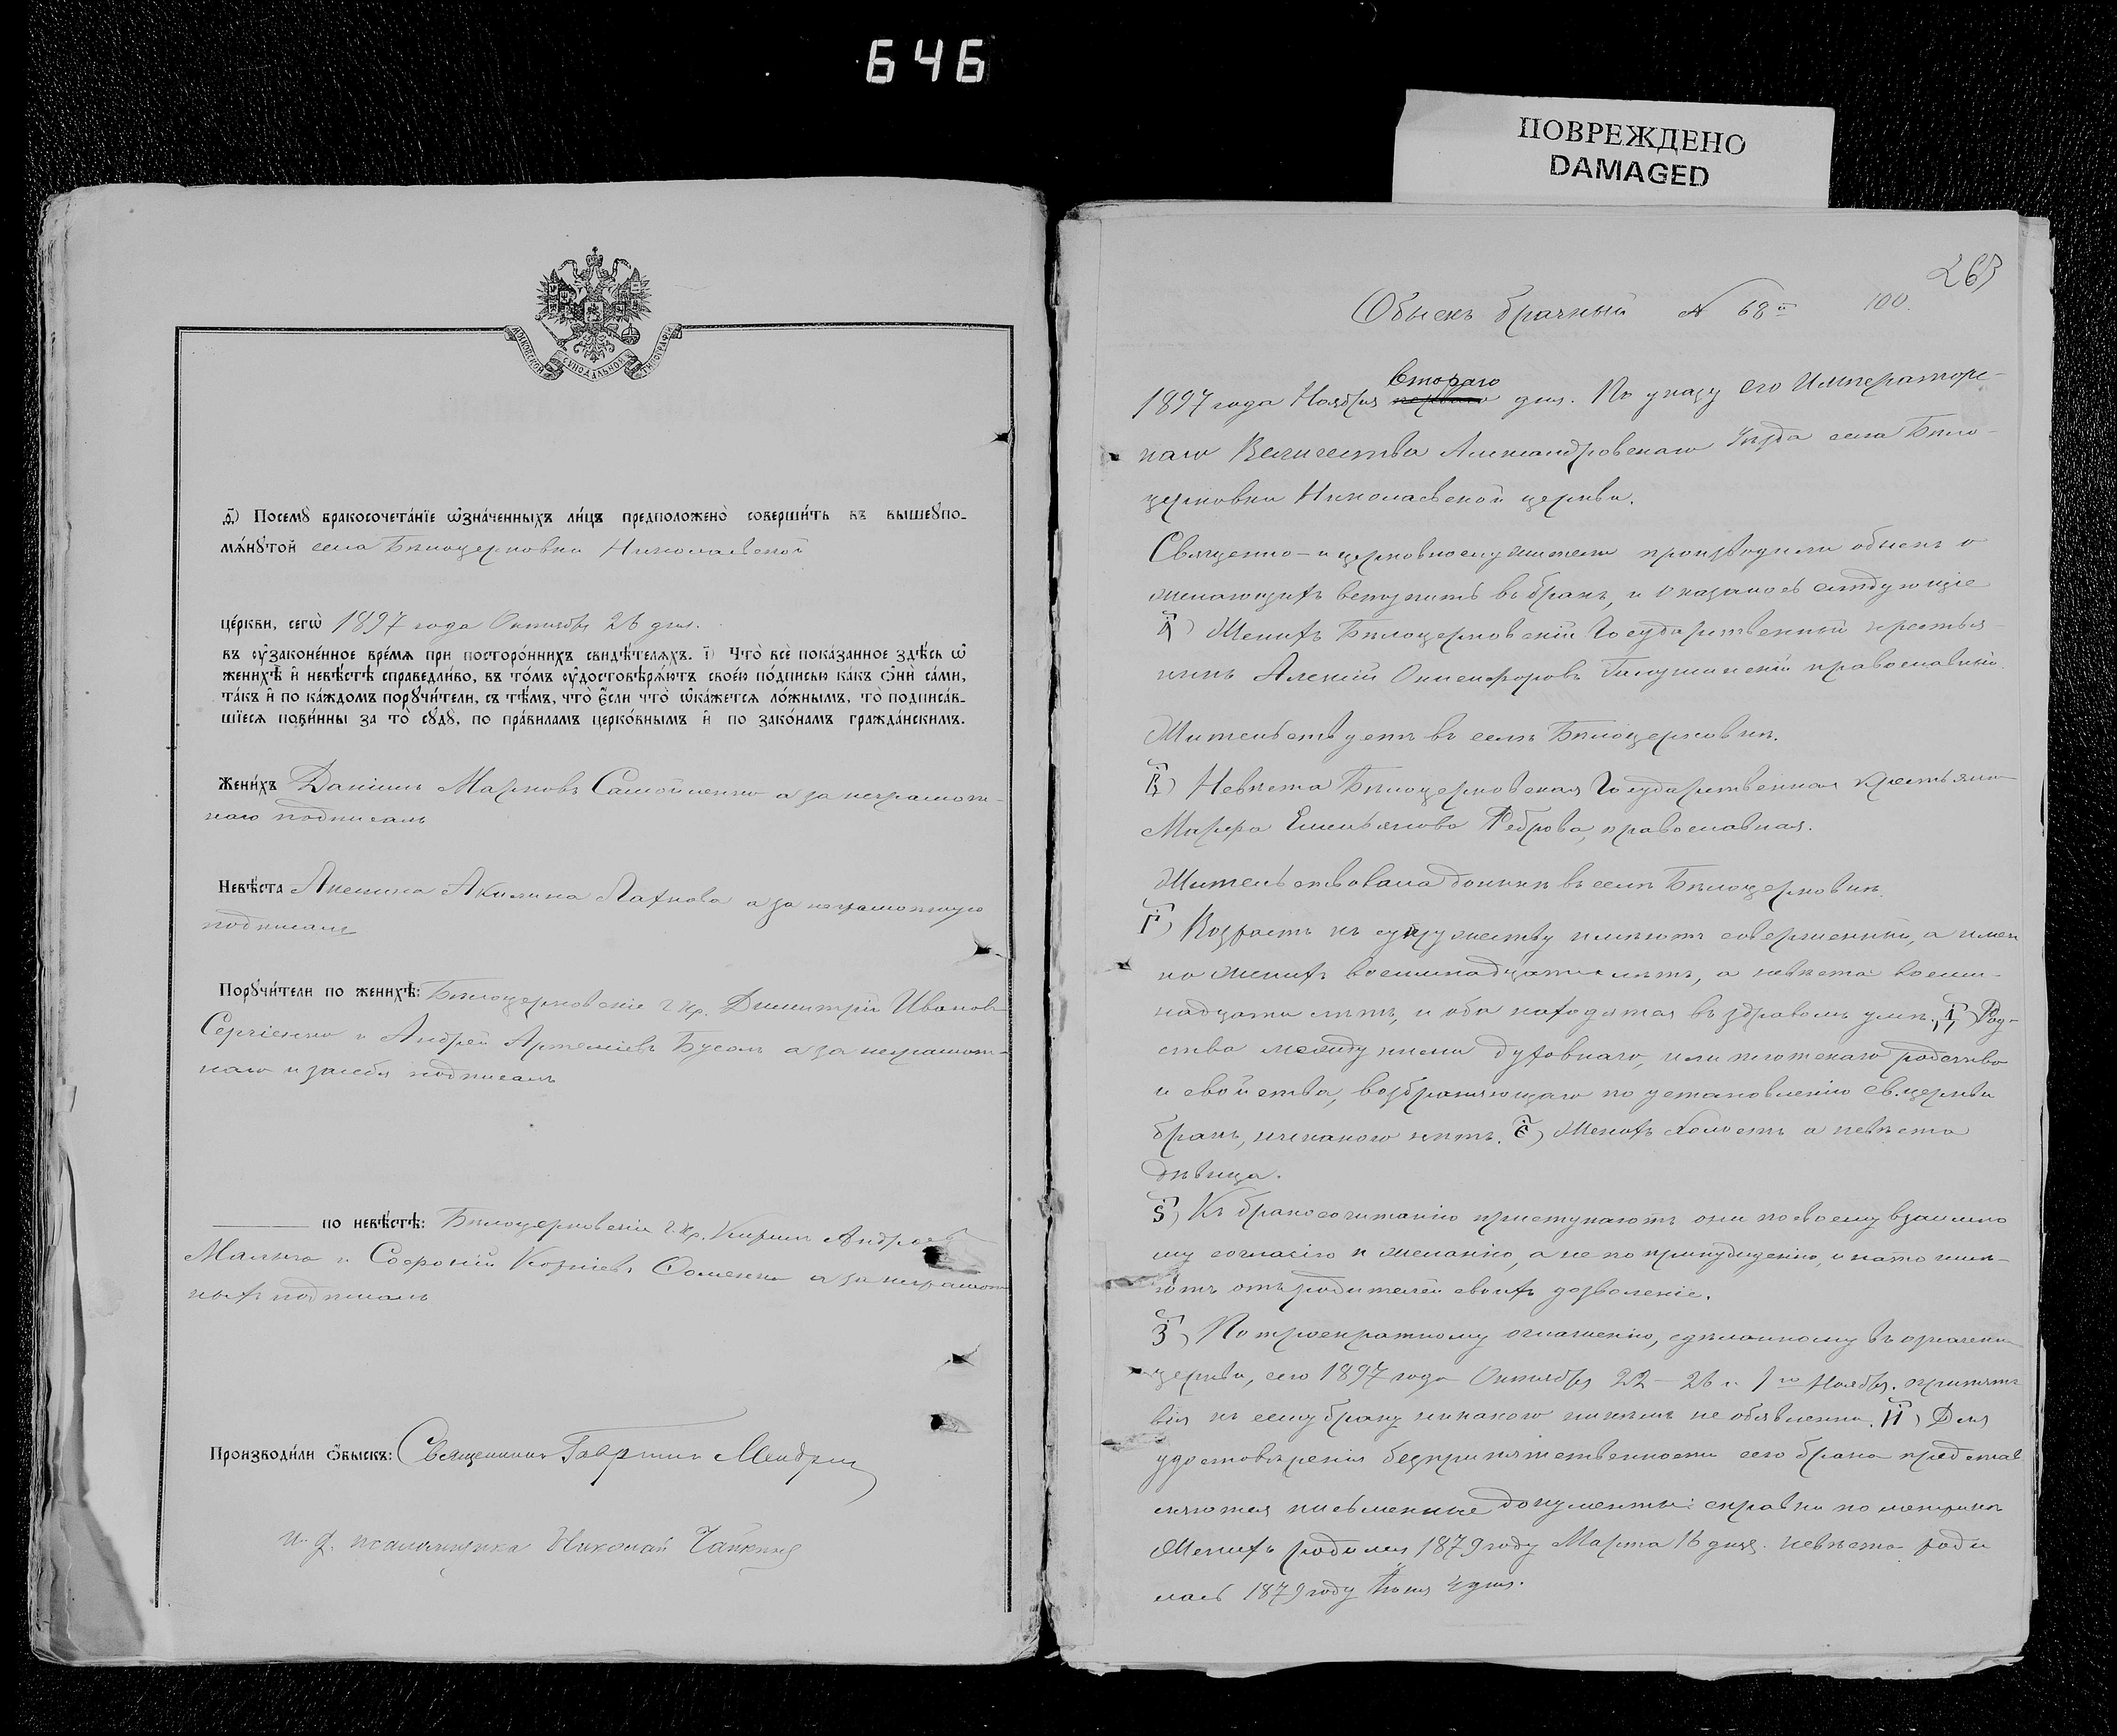 646
ПОВРЕЖДЕНО
DAMAGED
МОСКОВСКОЙ СѴНОДАЛЬНОЙ ТИПОГРАФІИ
Ѳ҃) Посемꙋ бракосочета́нїе ѡ҆зна́ченныхъ ли́цъ предположено̀ соверши́ть въ вышеꙋпо-
мѧ́нꙋтой села Бѣлоцерковки Николаевской
це́ркви, сегѡ̀ 1897 года Октября 26 дня.
въ ᲂу҆зако́нен­ное вре́мѧ при посторо́ннихъ свидѣ́телѧхъ. і҃) Что̀ всѐ пока́занное здѣ́сь ѡ҆
женихѣ̀ и҆ невѣ́стѣ справедли́во, въ то́мъ ᲂу҆достовѣрѧ́ютъ свое́ю по́дписью ка́къ ѻ҆нѝ са́ми,
та́къ и҆ по ка́ждомъ порꙋчи́тели, съ тѣ́мъ, что̀ є҆́сли что̀ ѡ҆ка́жетсѧ ло́жнымъ, то̀ подписа́в-
шїесѧ пови́нны за то̀ сꙋдꙋ̀, по пра́виламъ церко́внымъ и҆ по зако́намъ гражда́нскимъ.
Жени́хъ Даніилъ Марковъ Самойленко а за неграмот-
наго подписалъ
Невѣ́ста Акилина Лахнова а за неграмотную
подписалъ
Порꙋчи́тели по женихѣ̀: Бѣлоцерковскіе г. кр. Димитрій Ивановъ
Сергіенко и Андрей Артеміевъ Бусолъ а за неграмот-
наго и за себя подписалъ
по невѣ́стѣ: Бѣлоцерковскіе г. кр. Кириллъ Андреевъ
и Софроній а за неграмот
ныхъ подписалъ
Производи́ли ѻ҆́быскъ: Священникъ Гавріилъ
и. д. псаломщика Николай Чайкинъ
263
Обыскъ брачный № 68й 100.
Втораго
1897 года Ноября перваго дня. По указу Его Император-
скаго Величества Александровскаго Уѣзда села Бѣло-
церковки Николаевской церкви.
Священно-и церковнослужители производили обыскъ о
желающихъ вступить въ бракъ, и оказалось слѣдующіе
А҃) Женихъ Бѣлоцерковскій Государственный крестья-
нинъ Алексій Онисифоровъ православный.
Жительствуетъ въ селѣ Бѣлоцерковкѣ.
В҃) Невѣста Бѣлоцерковская Государственная крестьянка
Марфа Емельянова Реброва, православная.
Жительствовала донынѣ въ селѣ Бѣлоцерковкѣ.
Г҃) Возрастъ къ супружеству имѣютъ совершенный, а имен
но женихъ восемнадцати лѣтъ, а невѣста восем-
надцати лѣтъ, и оба находятся въ здравомъ умѣ. Д҃) Род-
ства между ними духовнаго, или плотскаго родства
и свойства, возбраняющаго по установленію св. церкви
бракъ, никакого нѣтъ. Є҃) Женихъ холостъ а невѣста
дѣвица.
Ѕ҃) Къ бракосочитанію приступаютъ они по своему взаимно
му согласію и желанію, а не по принужденію, и на то имѣ-
ютъ отъ родителей своихъ дозволеніе.
З҃) По троекратному оглашенію, сдѣланному въ означенн
церкви, сего 1897 года Октября 22 - 26 и 1го Ноября. препятст
вія къ сему браку никакого никѣмъ не объявленно. И҃) Для
удостовѣренія безпрепятственности сего брака представ
ляются письменные документы: справки по метрикѣ
Женихъ родился 1879 году Марта 16 дня. невѣста роди
лась 1879 году Іюня 4 дня.